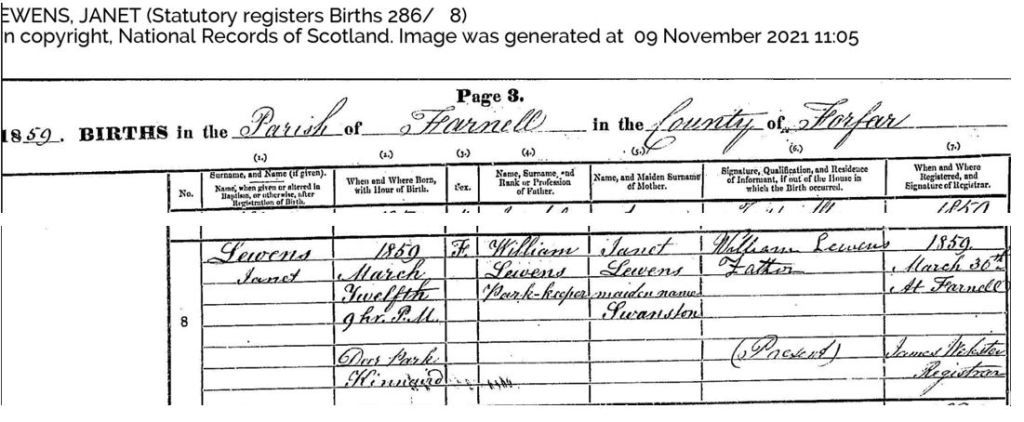 EWENS, JANET (Statutory registers Births 286/ 8)
n copyright, National Records of Scotland. Image was generated at 09 November 2021 11:05
Page 3.
1859. BIRTHS in the Parish of Farnell in the County of Forfar
(1.) (2.) (3.) (4.) (5.) (6.) (7.)
No.
Surname, and Name (if given).
Name, when given or altered in
Baptism, or otherwise, after
Registration of Birth.
When and Where Born,
with Hour of Birth.
Sex.
Name, Surname, and
Rank or Profession
of Father.
Name, and Maiden Surname
of Mother.
Signature, Qualification, and Residence
of Informant, if out of the House in
which the Birth occurred.
When and Where
Registered, and
Signature of Registrar.
8
Lewens
Janet
1859
March
Twelfth
9 hr. P.M.
Deer Park
Kinnaird
F.
William
Lewens
Park-keeper
Janet
Lewens
maiden name
Swanston
William Lewens
Father
(Present)
1859.
March 30th
At Farnell
James Webster
Registrar